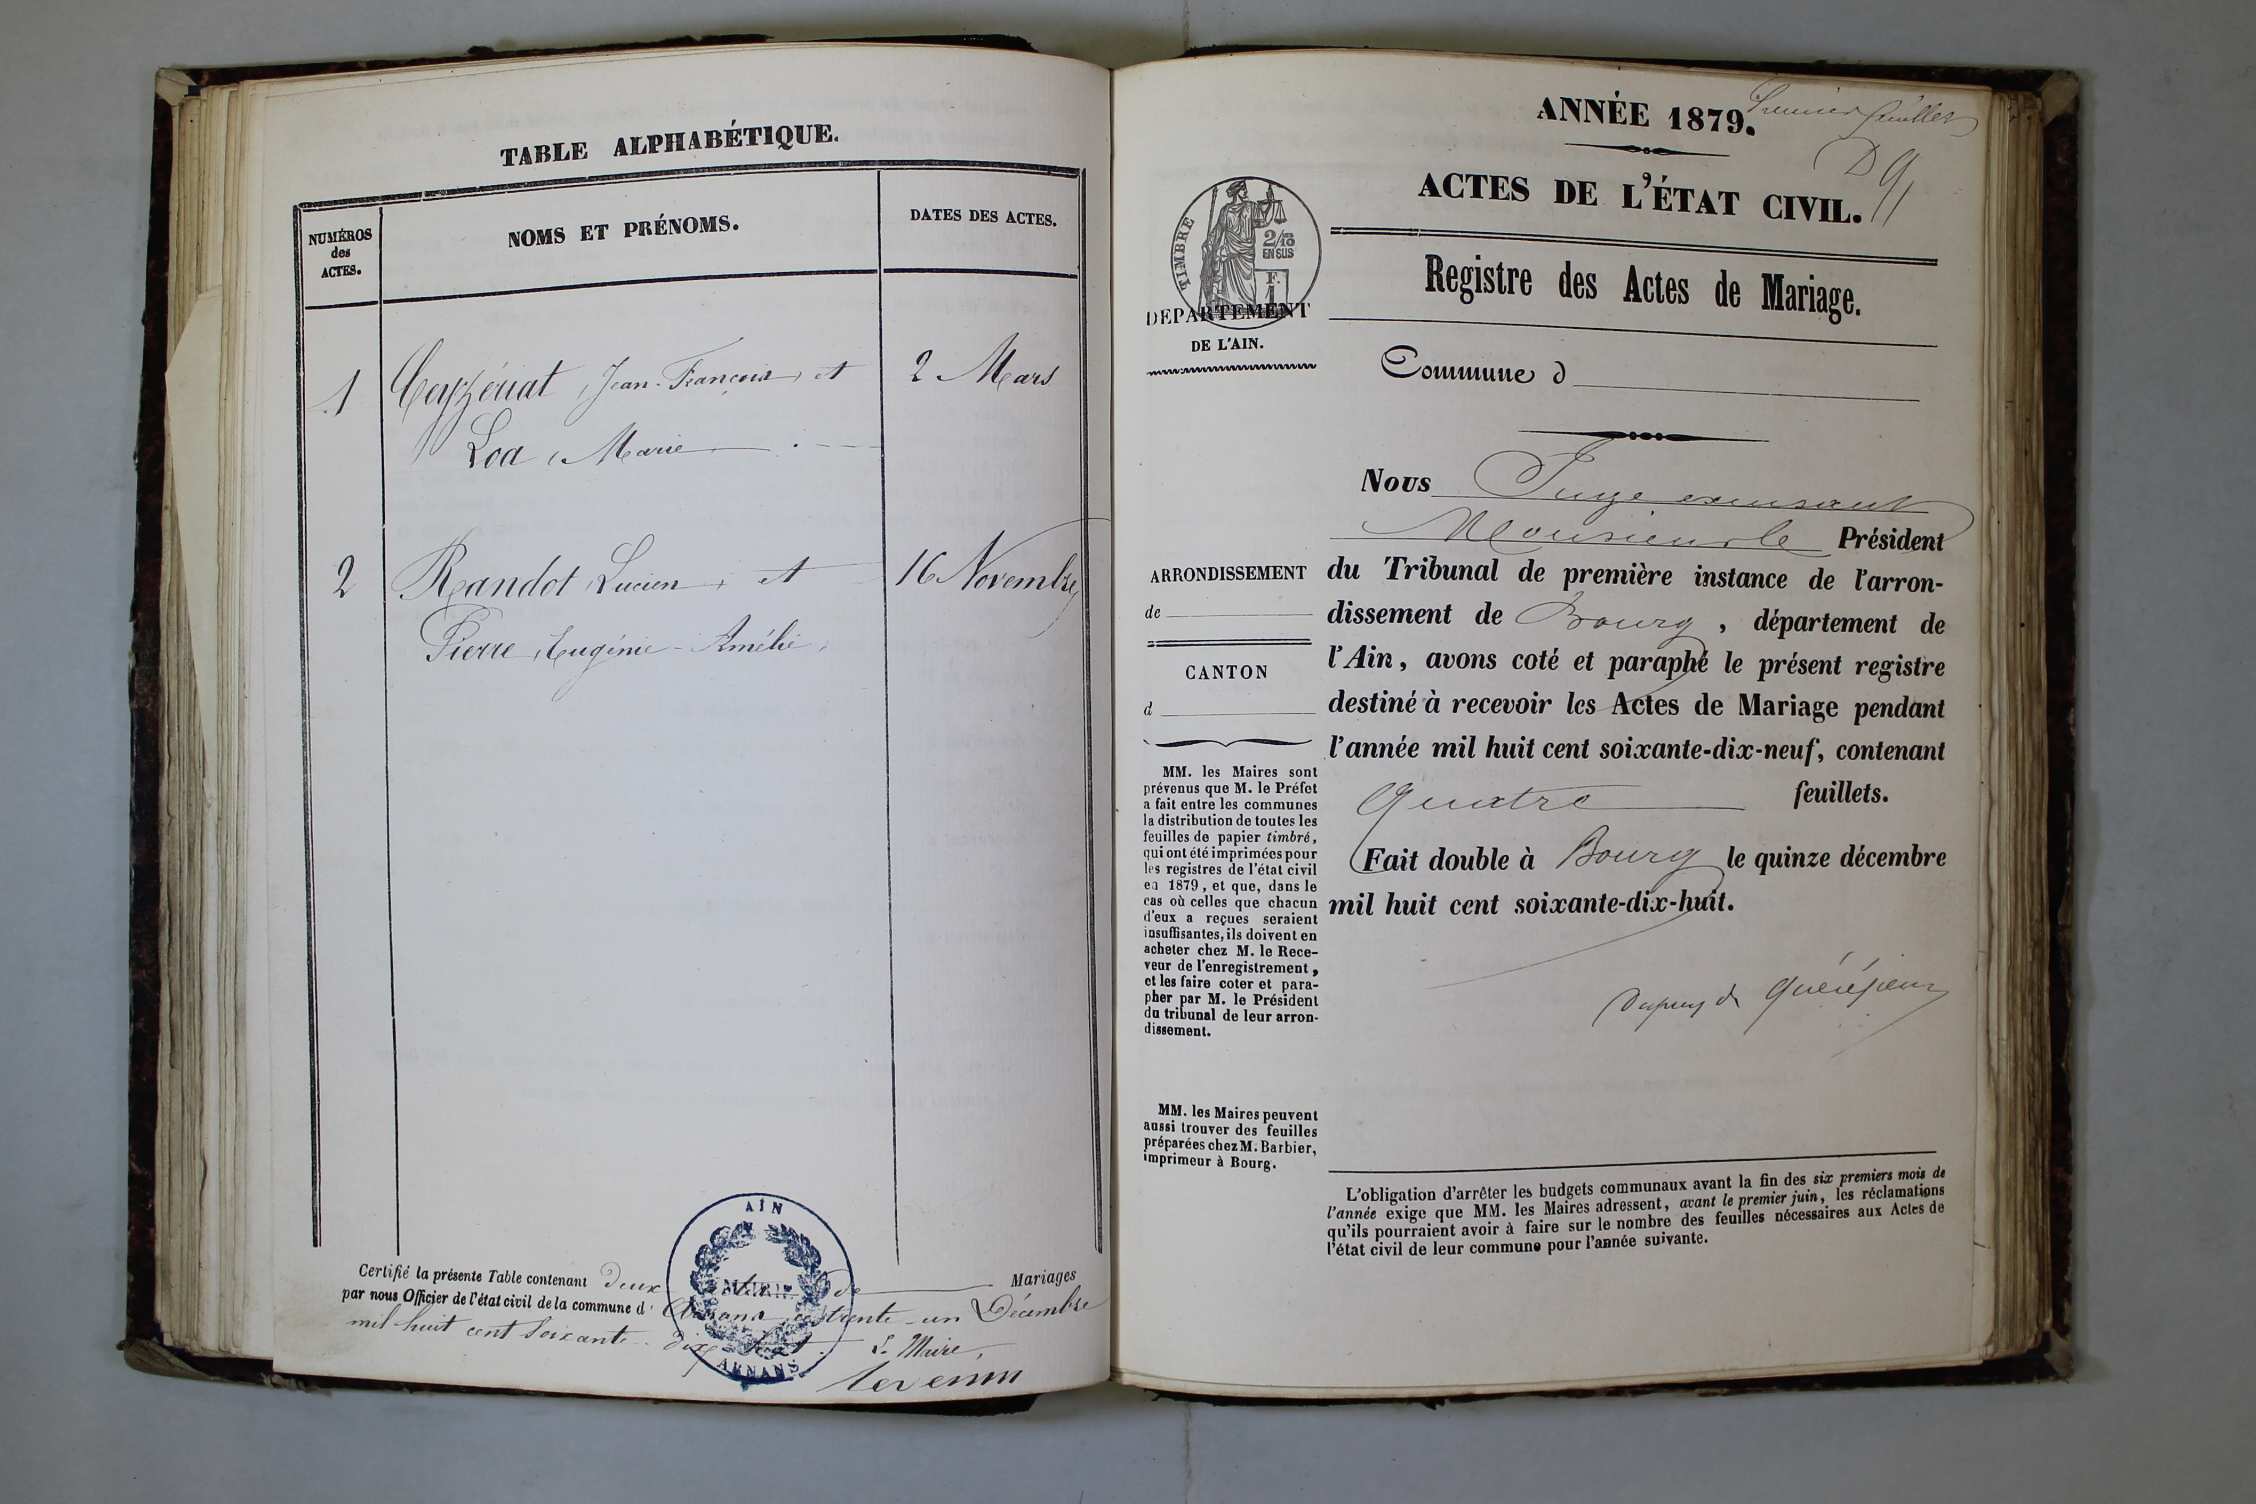 TABLE ALPHABÉTIQUE.
NUMÉROS
des
ACTES.
NOMS ET PRÉNOMS.
DATES DES ACTES.
1 Ceyzériat, Jean-François, et 2 Mars
Loa, Marie
2 Randot, Lucien, et 16 Novembre
Pierre, Eugénie-Amélie,
Certifié la présente Table contenant deux Mariages
par nous Officier de l'état civil de la commune d' Arnans, trente-un Décembre
mil huit cent soixante-dix-huit. Le Maire,
AIN
MAIRIE
ARNANS
ANNÉE 1879.
Premier feuillet
ACTES DE L'ÉTAT CIVIL.
Registre des Actes de Mariage.
TIMBRE
2/10
EN SUS
F.
1
DÉPARTEMENT
DE L'AIN.
Commune d
Nous Juge exerçant
Monsieur le Président
ARRONDISSEMENT
de
CANTON
d
du Tribunal de première instance de l'arron-
dissement de Bourg, département de
l'Ain, avons coté et paraphé le présent registre
destiné à recevoir les Actes de Mariage pendant
l'année mil huit cent soixante-dix-neuf, contenant
quatre feuillets.
Fait double à Bourg le quinze décembre
mil huit cent soixante-dix-huit.
Dupuy de
MM. les Maires sont
prévenus que M. le Préfet
a fait entre les communes
la distribution de toutes les
feuilles de papier timbré,
qui ont été imprimées pour
les registres de l'état civil
en 1879, et que, dans le
cas où celles que chacun
d'eux a reçues seraient
insuffisantes, ils doivent en
acheter chez M. le Rece-
veur de l'enregistrement,
et les faire coter et para-
pher par M. le Président
du tribunal de leur arron-
dissement.
MM. les Maires peuvent
aussi trouver des feuilles
préparées chez M. Barbier,
imprimeur à Bourg.
L'obligation d'arrêter les budgets communaux avant la fin des six premiers mois de
l'année exige que MM. les Maires adressent, avant le premier juin, les réclamations
qu'ils pourraient avoir à faire sur le nombre des feuilles nécessaires aux Actes de
l'état civil de leur commune pour l'année suivante.